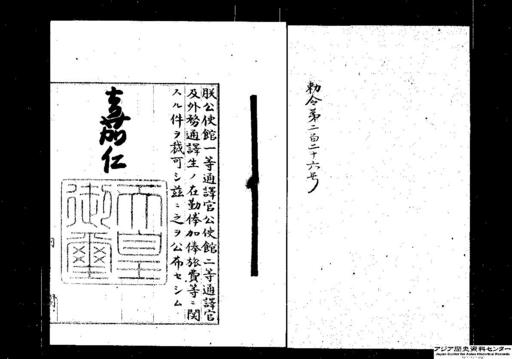 勅令第二百二十六号
朕公使館一等通譯官公使館二等通譯官
及外務通譯生ノ在勤俸加俸旅費等ニ関
スル件ヲ裁可シ茲ニ之ヲ公布セシム
嘉仁
天皇
御璽
アジア歴史資料センター
Japan Center for Asian Historical Records